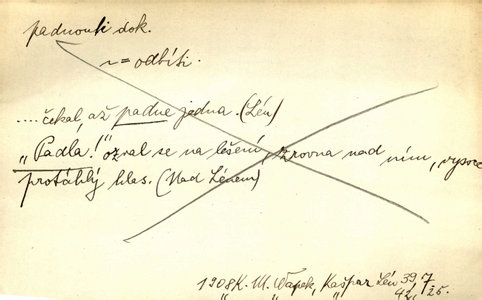 padnouti dok.
~ = odbíti.
.... čekal, až padne jedna. (Lén)
„Padla!" ozval se na lešení, zrovna nad ním, vysoce
protáhlý hlas. (Nad Lénem)
1908 K. M. Čapek, Kašpar Lén 39, 7
„ „ 41, 25.